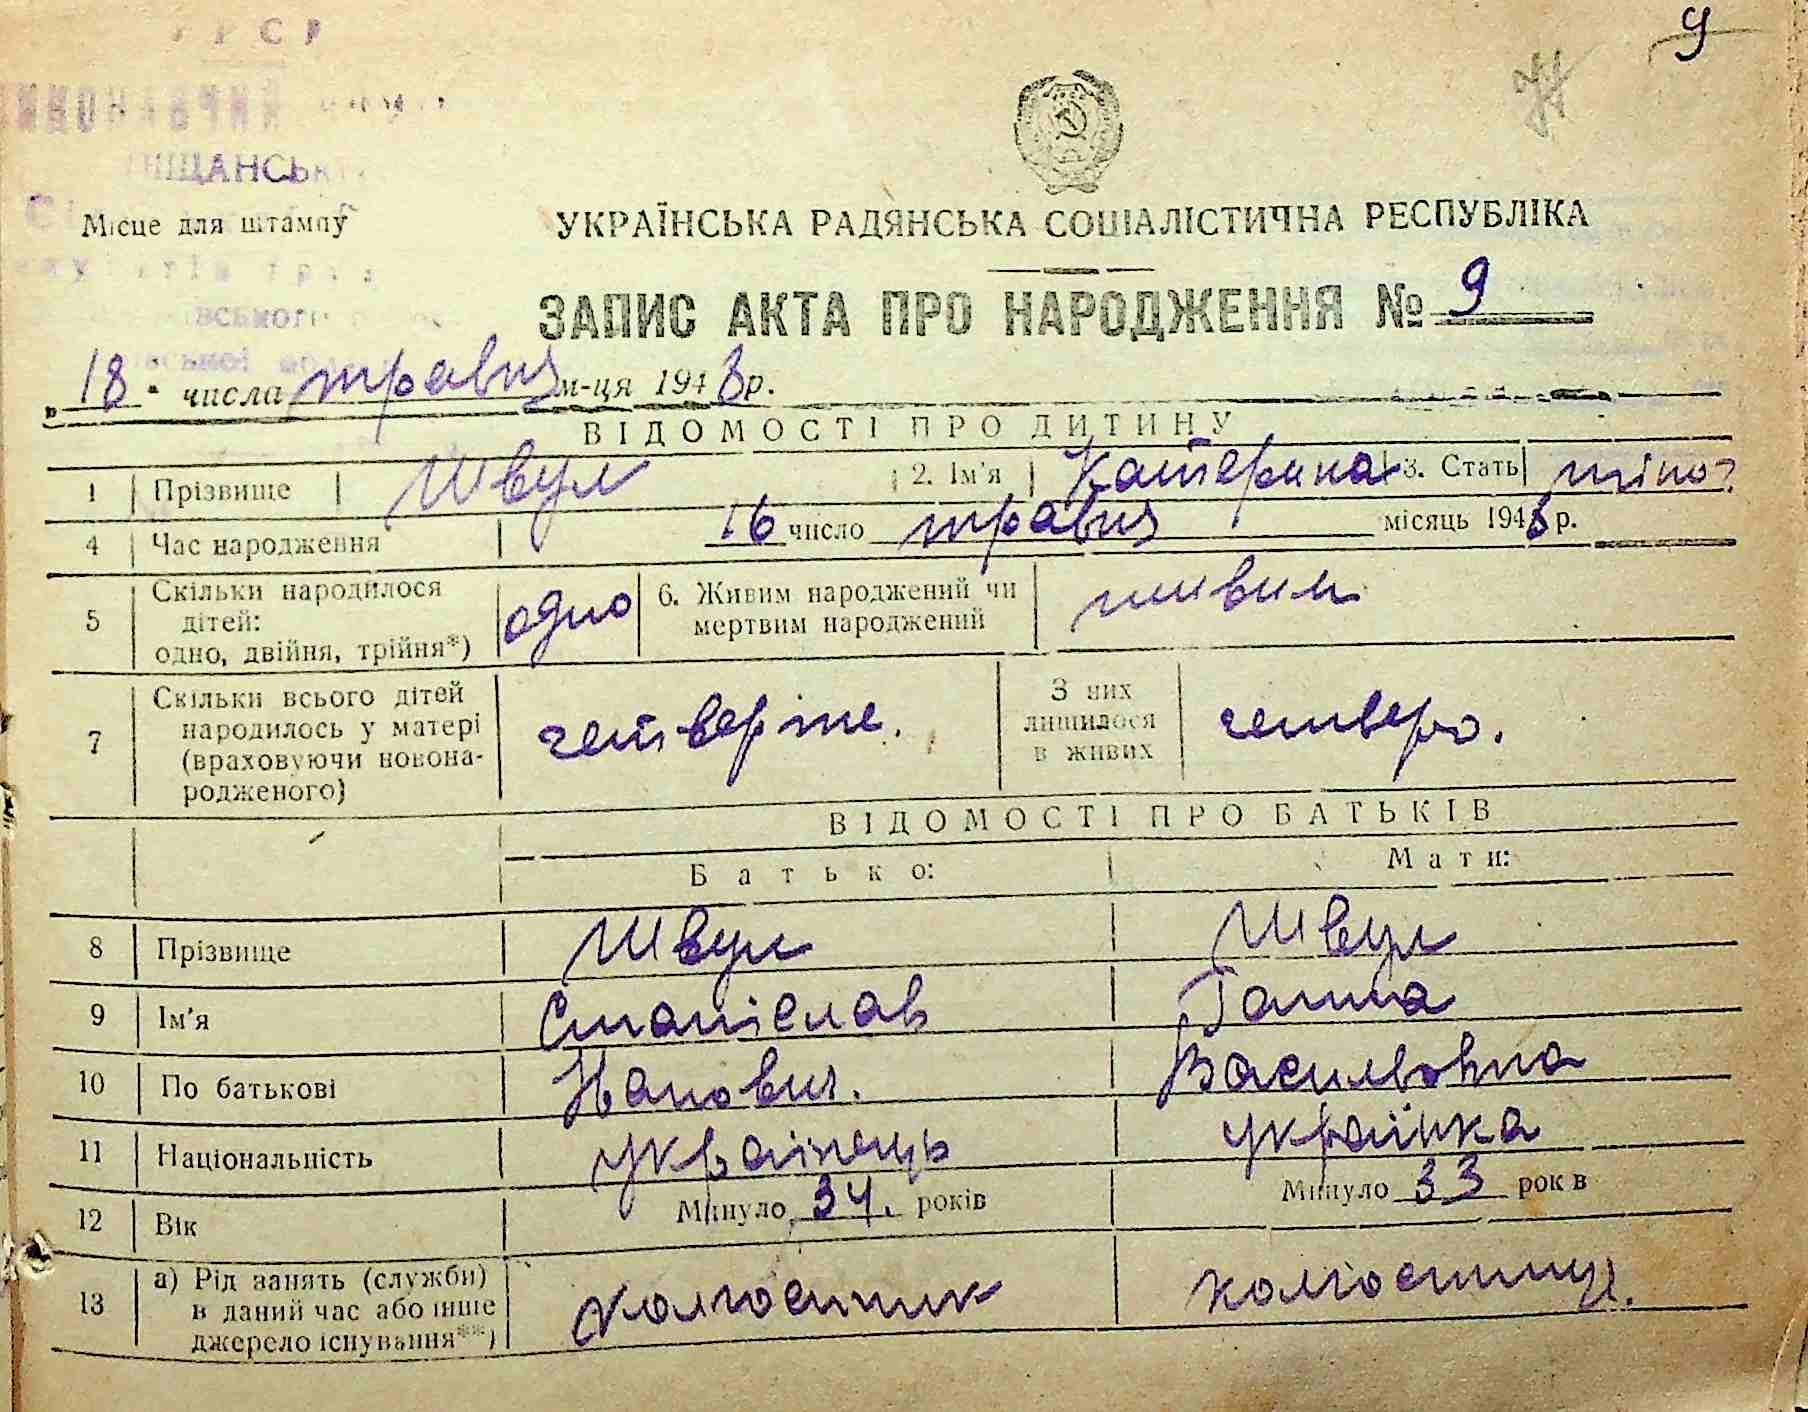 9
ЩАНСЬК
Місце для штампу
УКРАЇНСЬКА РАДЯНСЬКА СОЦІАЛІСТИЧНА РЕСПУБЛІКА
ЗАПИС АКТА ПРО НАРОДЖЕННЯ № 9
„18“ числа травня м-ця 1948 р.
ВІДОМОСТІ ПРО ДИТИНУ
1 Прізвище Швул 2. Ім'я Катерина 3. Стать жіноч
4 Час народження 16 число травня місяць 1948 р.
5 Скільки народилося дітей: одно, двійня, трійня*) одно 6. Живим народжений чи мертвим народжений живим
7 Скільки всього дітей народилось у матері (враховуючи новонародженого) четверте. З них лишилося в живих четверо.
ВІДОМОСТІ ПРО БАТЬКІВ
Батько: Мати:
8 Прізвище Швул Швул
9 Ім'я Станіслав Ганна
10 По батькові Василовна
11 Національність українець українка
12 Вік Минуло 34. років Минуло 33 років
13 а) Рід занять (служби) в даний час або інше джерело існування**) колгоспник колгоспниця.